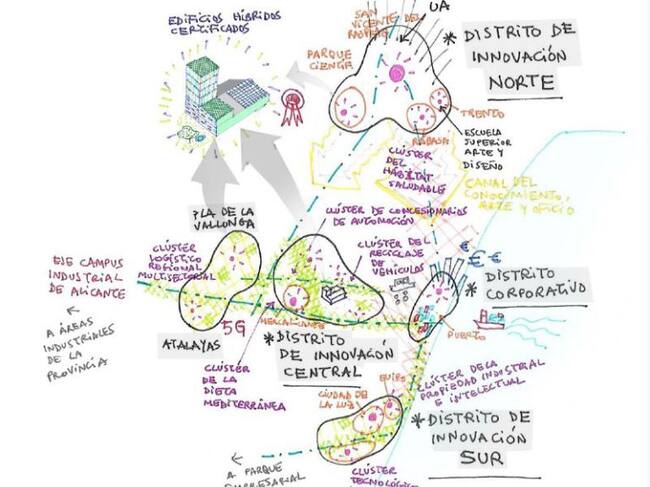 EDIFICIOS HÍBRIDOS
CERTIFICADOS
SAN
VICENTE DEL
RASPEIG
UA
PARQUE
CIENCIA
* DISTRITO DE
INNOVACIÓN
NORTE
TRENTO
RABASA
ESCUELA
SUPERIOR
ARTE Y
DISEÑO
CLÚSTER
DEL
HÁBITAT
SALUDABLE
CANAL DEL
CONOCIMIENTO,
ARTE Y OFICIO
PLA DE LA
VALLONGA
CLÚSTER DE CONCESIONARIOS
DE AUTOMOCIÓN
CLÚSTER
LOGÍSTICO
REGIONAL
MULTISECTORIAL
CLÚSTER DEL
RECICLAJE
DE
VEHÍCULOS
EJE CAMPUS
INDUSTRIAL
DE ALICANTE
€€€
* DISTRITO
CORPORATIVO
A ÁREAS
INDUSTRIALES
DE LA
PROVINCIA
5G
MERCALICANTE
PUERTO
ATALAYAS
* DISTRITO
DE INNOVACIÓN
CENTRAL
CLÚSTER
DE LA
DIETA
MEDITERRÁNEA
CLÚSTER DE LA
PROPIEDAD INDUSTRIAL
E INTELECTUAL
EUIPO
CIUDAD DE
LA LUZ
* DISTRITO DE
INNOVACIÓN
SUR
A PARQUE
EMPRESARIAL
CLÚSTER
TECNOLÓGICO